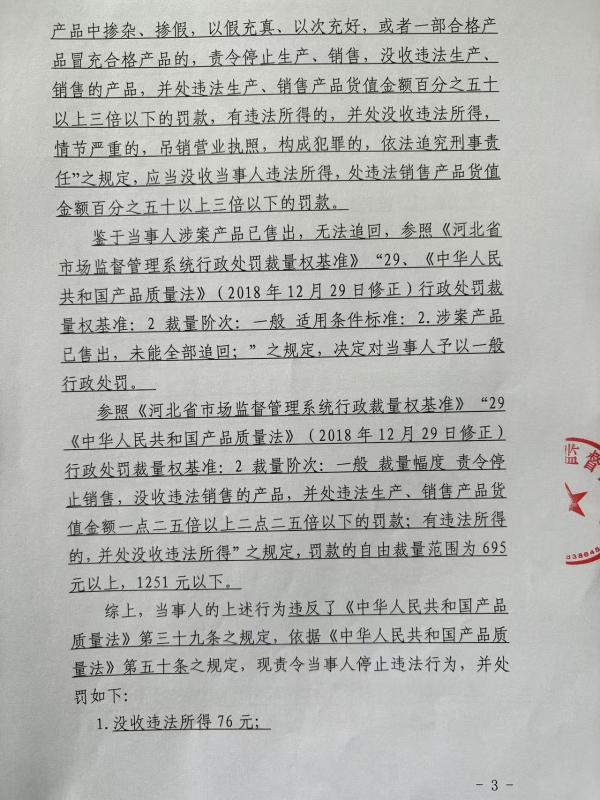 产品中掺杂、掺假，以假充真、以次充好，或者一部合格产
品冒充合格产品的，责令停止生产、销售，没收违法生产、
销售的产品，并处违法生产、销售产品货值金额百分之五十
以上三倍以下的罚款，有违法所得的，并处没收违法所得，
情节严重的，吊销营业执照，构成犯罪的，依法追究刑事责
任”之规定，应当没收当事人违法所得，处违法销售产品货值
金额百分之五十以上三倍以下的罚款。
鉴于当事人涉案产品已售出，无法追回，参照《河北省
市场监督管理系统行政处罚裁量权基准》“29、《中华人民
共和国产品质量法》（2018年12月29日修正）行政处罚裁
量权基准：2 裁量阶次：一般 适用条件标准：2.涉案产品
已售出，未能全部追回；”之规定，决定对当事人予以一般
行政处罚。
参照《河北省市场监督管理系统行政裁量权基准》“29
《中华人民共和国产品质量法》（2018年12月29日修正）
行政处罚裁量权基准：2 裁量阶次：一般 裁量幅度 责令停
止销售，没收违法销售的产品，并处违法生产、销售产品货
值金额一点二五倍以上二点二五倍以下的罚款；有违法所得
的，并处没收违法所得”之规定，罚款的自由裁量范围为695
元以上，1251元以下。
综上，当事人的上述行为违反了《中华人民共和国产品
质量法》第三十九条之规定，依据《中华人民共和国产品质
量法》第五十条之规定，现责令当事人停止违法行为，并处
罚如下：
1.没收违法所得76元；
监督
- 3 -